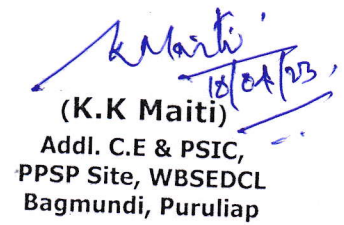 K Maiti
18/04/23
(K.K Maiti)
Addl. C.E & PSIC,
PPSP Site, WBSEDCL
Bagmundi, Puruliap